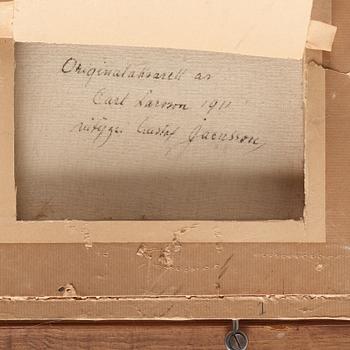 Originalakvarell av
Carl Larsson 1911
intygar Gustaf Jacobsson,